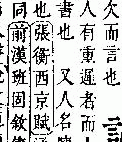 欠而言也
人有重遲者而
書也 又人名
也張衡西京賦
同前漢班固敘